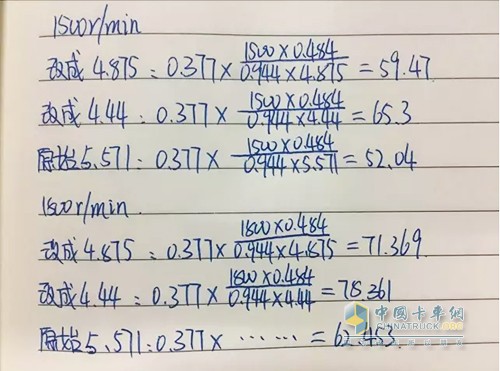 1500r/min
改成4.875:0.377×1500×0.484/0.944×4.875=59.47
改成4.44:0.377×1500×0.484/0.944×4.44=65.3
原始5.571:0.377×1500×0.484/0.944×5.571=52.04
1800r/min.
改成4.875:0.377×1800×0.484/0.944×4.875=71.369
改成4.44:0.377×1800×0.484/0.944×4.44=78.361
原始5.571:0.377×……=62.453
中国卡车网
CHINATRUCK.ORG